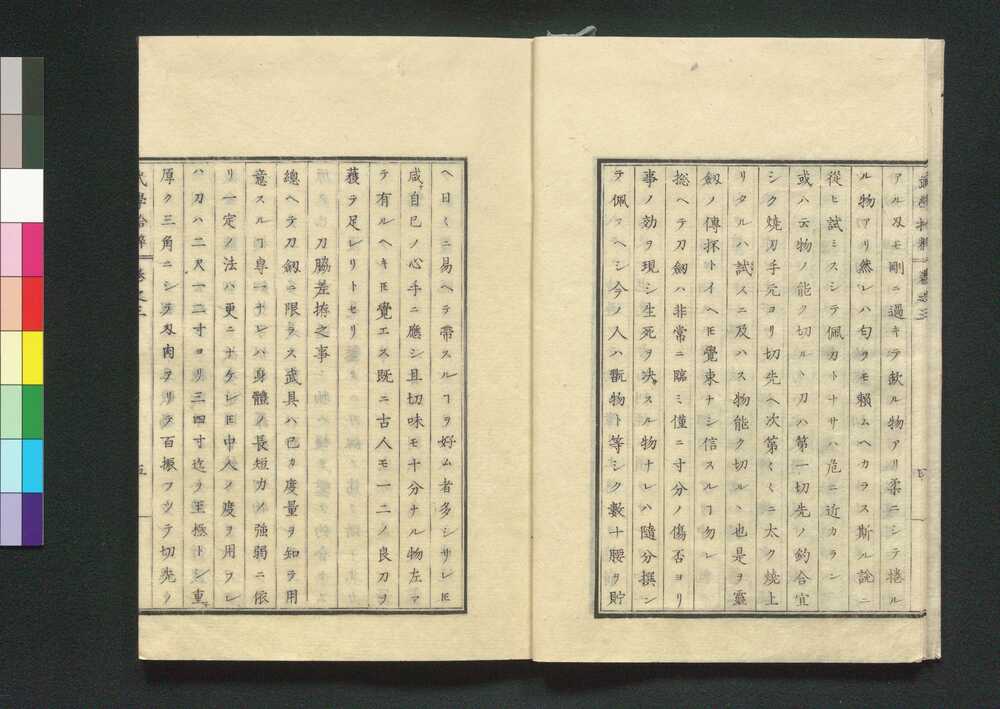 アル刄モ剛ニ過キテ缺ル物アリ柔ニシテ捲ル
ル物アリ然レハ匂ヲモ賴ムヘカラス斯ル說ニ
從ヒ試ミスシテ佩カトナサハ危ニ近カラン
或ハ云物ノ能ク切ルヽ刀ハ第一切先ノ釣合宜
シク燒刀手元ヨリ切先ヘ次第くくニ太ク燒上
リタルハ試スニ及ハス物能ク切ルヽ也是ヲ靈
釼ノ傳抔トイヘ𪜈覺束ナシ信スルヿ勿レ
捴ヘテ刀釼ハ非常ニ臨ミ僅ニ寸分ノ傷否ヨリ
事ノ効ヲ現シ生死ヲ决スル物ナレハ隨分撰ン
テ佩フヘシ今ノ人ハ翫物ト等シク數十腰ヲ貯
ヘ日くニ易ヘテ帶スルヿヲ好ム者多シサレ𪜈
咸自已ノ心手ニ應シ且切味モ十分ナル物左マ
テ有ルヘキ𪜈覺エス既ニ古人モ一二ノ良刀ヲ
獲テ足レリトセリ
刀脇差捴之事
總ヘテ刀釼ニ限ラス武具ハ已カ度量ヲ知テ用
意スルヿ専一ナレハ身體ノ長短力ノ強弱ニ依
リ一定ノ法ハ更ニナケレ𪜈中人ノ度ヲ用フレ
ハ刀ハ二尺一二寸ヨリ三四寸迄ヲ至極トシ重
厚ク三角ニシテ刄肉ヲトリテ百振フウテ切先ヲ
武學拾粹 卷之三
五